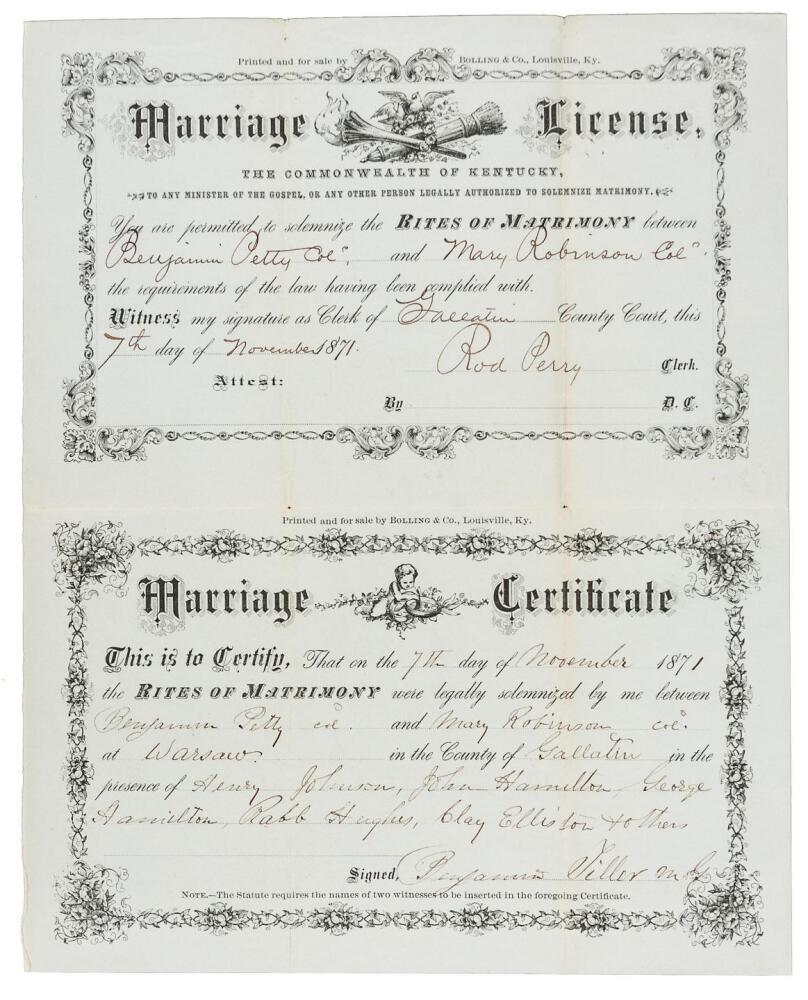 Printed and for sale by BOLLING & CO., Louisville, Ky.
Marriage License,
THE COMMONWEALTH OF KENTUCKY,
TO ANY MINISTER OF THE GOSPEL, OR ANY OTHER PERSON LEGALLY AUTHORIZED TO SOLEMNIZE MATRIMONY.
You are permitted to solemnize the RITES OF MATRIMONY between
Benjamin Petty Col^d, and Mary Robinson Col^d.
the requirements of the law having been complied with.
Witness my signature as Clerk of Gallatin County Court, this
7th day of November 1871.
Rod Perry Clerk.
Attest:
By D. C.
Printed and for sale by BOLLING & CO., Louisville, Ky.
Marriage Certificate
This is to Certify, That on the 7th day of November 1871
the RITES OF MATRIMONY were legally solemnized by me between
Benjamin Petty col^d. and Mary Robinson col^d.
at Warsaw. in the County of Gallatin in the
presence of Henry Johnson, John Hamilton, George
Hamilton, Rabb Hughes, Clay Elliston & others
Signed, Benjamin Tiller M G
NOTE.—The Statute requires the names of two witnesses to be inserted in the foregoing Certificate.